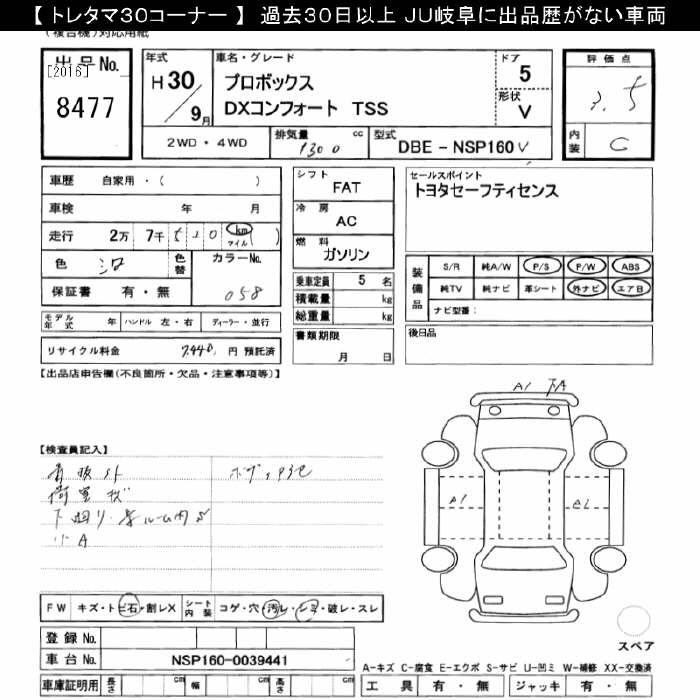 【 トレタマ30コーナー 】 過去30日以上 JU岐阜に出品歴がない車両
(複合機)対応用紙
出品No.
[2016]
8477
年式
H30/9月
車名・グレード
プロボックス
DXコンフォート TSS
ドア
5
形状
V
評価点
3.5
内装
C
2WD・4WD
排気量 cc
1300
型式
DBE - NSP160V
車歴 自家用・( )
車検 年 月
走行 2万 7千 510 km マイル ( )
色 シロ
色替
カラーNo.
058
保証書 有・無
モデル年式 年
ハンドル 左・右
ディーラー・並行
リサイクル料金 7,440. 円 預託済
シフト
FAT
冷房
AC
燃料
ガソリン
乗車定員 5 名
積載量 kg
総重量 kg
書類期限
月 日
セールスポイント
トヨタセーフティセンス
装備品
S/R 純A/W P/S P/W ABS
純TV 純ナビ 革シート 外ナビ エアB
ナビ型番:
後日品
【出品店申告欄(不良箇所・欠品・注意事項等)】
A1 下A
【検査員記入】
荷室キズ
小A
A1
A2
FW キズ・トビ石・割レX
シート内装 コゲ・穴・汚レ・シミ・破レ・スレ
登録 No.
車台 No. NSP160-0039441
スペア
A-キズ C-腐食 E-エクボ S-サビ U-凹ミ W-補修 XX-交換済
車庫証明用 長さ cm 幅 cm 高さ cm
工具 有・無 ジャッキ 有・無